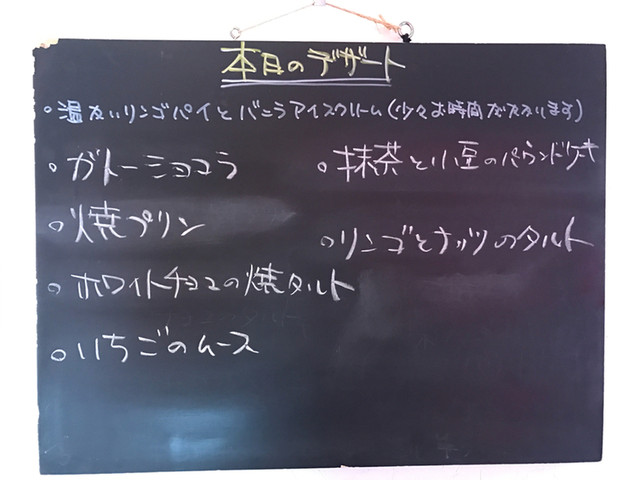 本日のデザート
○温かいリンゴパイとバニラアイスクリーム(少々お時間がかかります)
○ガトーショコラ
○焼プリン
○ホワイトチョコの焼タルト
○いちごのムース
○抹茶と小豆のパウンドケーキ
○リンゴとナッツのタルト